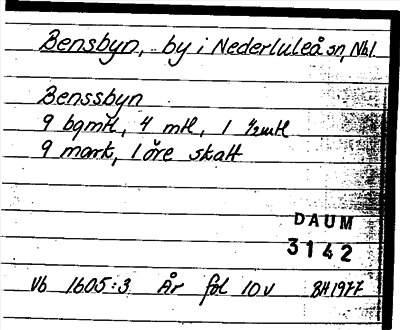 Bensbyn, by i Nederluleå sn, Nbl
Benssbyn
9 bgmtl, 4 mtl, 1 ½mtl
9 mark, 1 öre skatt
DAUM
3142
Vb 1605:3 År fol 10v BH1977